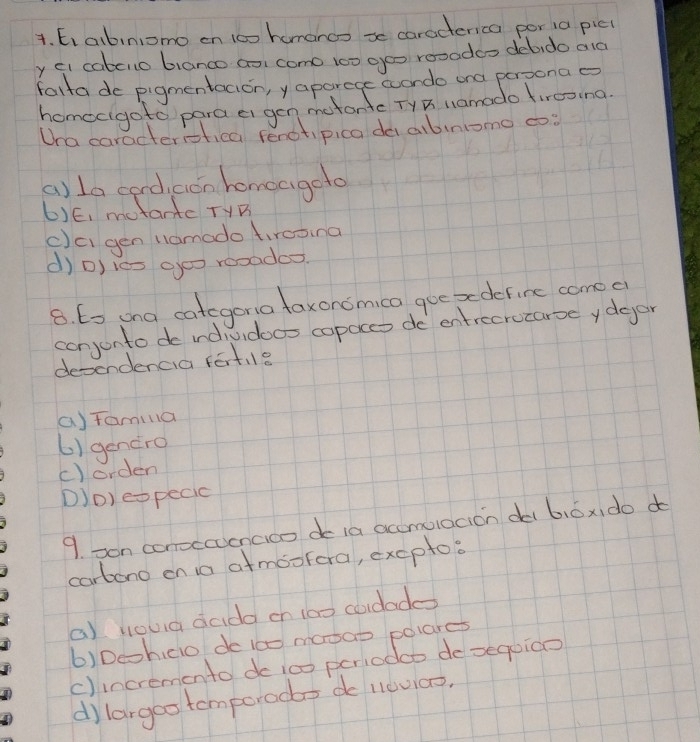 7. El albinismo en los humanos se caracterica por la piel
y el cabello blanco así como los ojos rosados debido a la
falta de pigmentación, y aparece cuando una persona es
homocigoto para el gen mutante TYR llamado tirosina.
Una caracteristica fenotipica del albinismo es:
a) La condición homocigoto
b) El mutante TYR
c) el gen llamado tirosina
d) D) los ojos rosados.
8. Es una categoria taxonómica que se define como el
conjunto de individuos capaces de entrecruzarse y dejar
desendencia fértil:
a) Familia
b) genero
c) orden
D) D) especie
9. son consecuencias de la acumulación del bióxido de
carbono en la atmósfera, exepto:
a) lluvia ácida en las cuidades
b) Deshielo de las masas polares
c) incremento de los periodos de sequias
d) largas temporadas de lluvias.